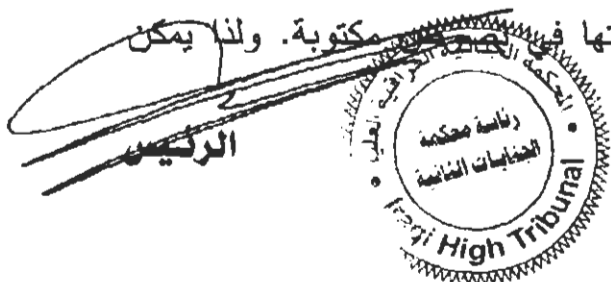 تها في نصوص مكتوبة. ولنا يمكن
الرئيس
المحكمة الجنائية العراقية العليا
رئاسة محكمة
الجنايات الثانية
Iraqi High Tribunal